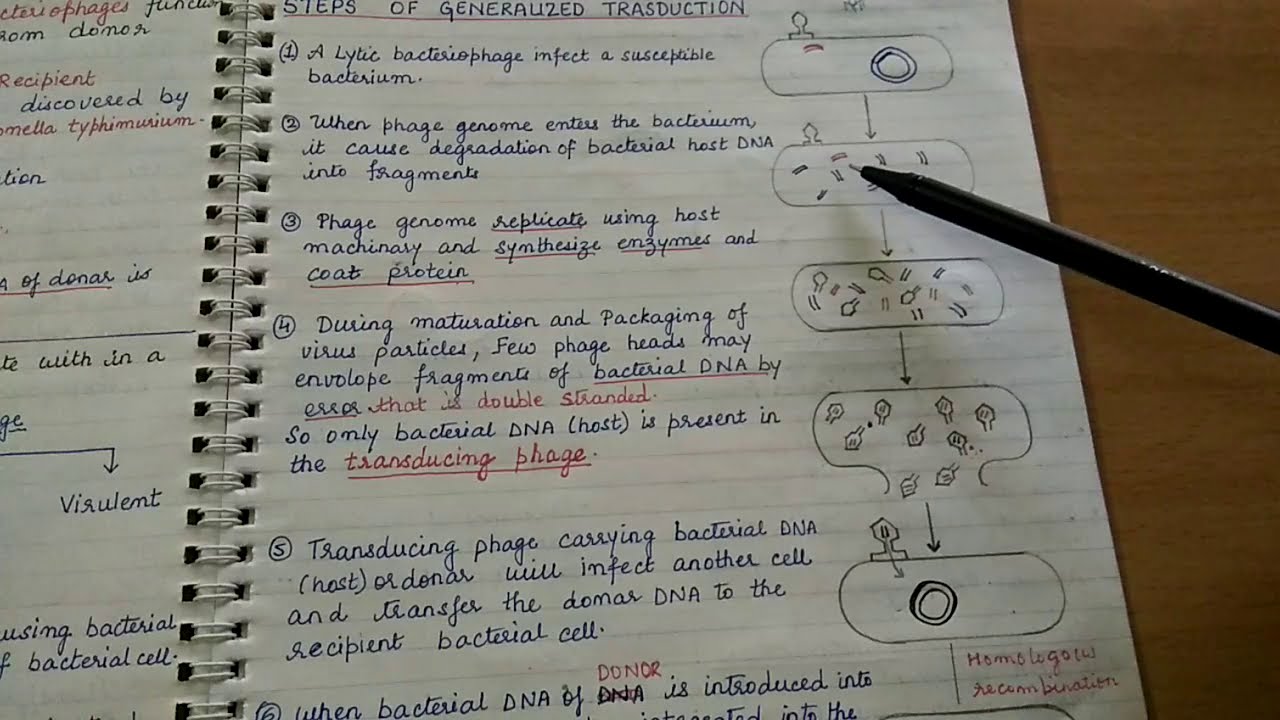 cteriophages function
rom donor
Recipient
discovered by
onella typhimurium.
tion
A of donar is
te with in a
ge
Virulent
using bacterial
f bacterial cell.
STEPS OF GENERALIZED TRASDUCTION
(1) A Lytic bacteriophage infect a susceptible
bacterium.
(2) When phage genome enters the bacterium,
it cause degradation of bacterial host DNA
into fragments
(3) Phage genome replicate using host
machinary and synthesize enzymes and
coat protein
(4) During maturation and Packaging of
virus particles, Few phage heads may
envolope fragments of bacterial DNA by
error that is double stranded.
So only bacterial DNA (host) is present in
the transducing phage.
(5) Transducing phage carrying bacterial DNA
(host) or donar will infect another cell
and transfer the donar DNA to the
recipient bacterial cell.
DONOR
(6) When bacterial DNA of DNA is introduced into
integrated into the
Homologo(u)
recombination